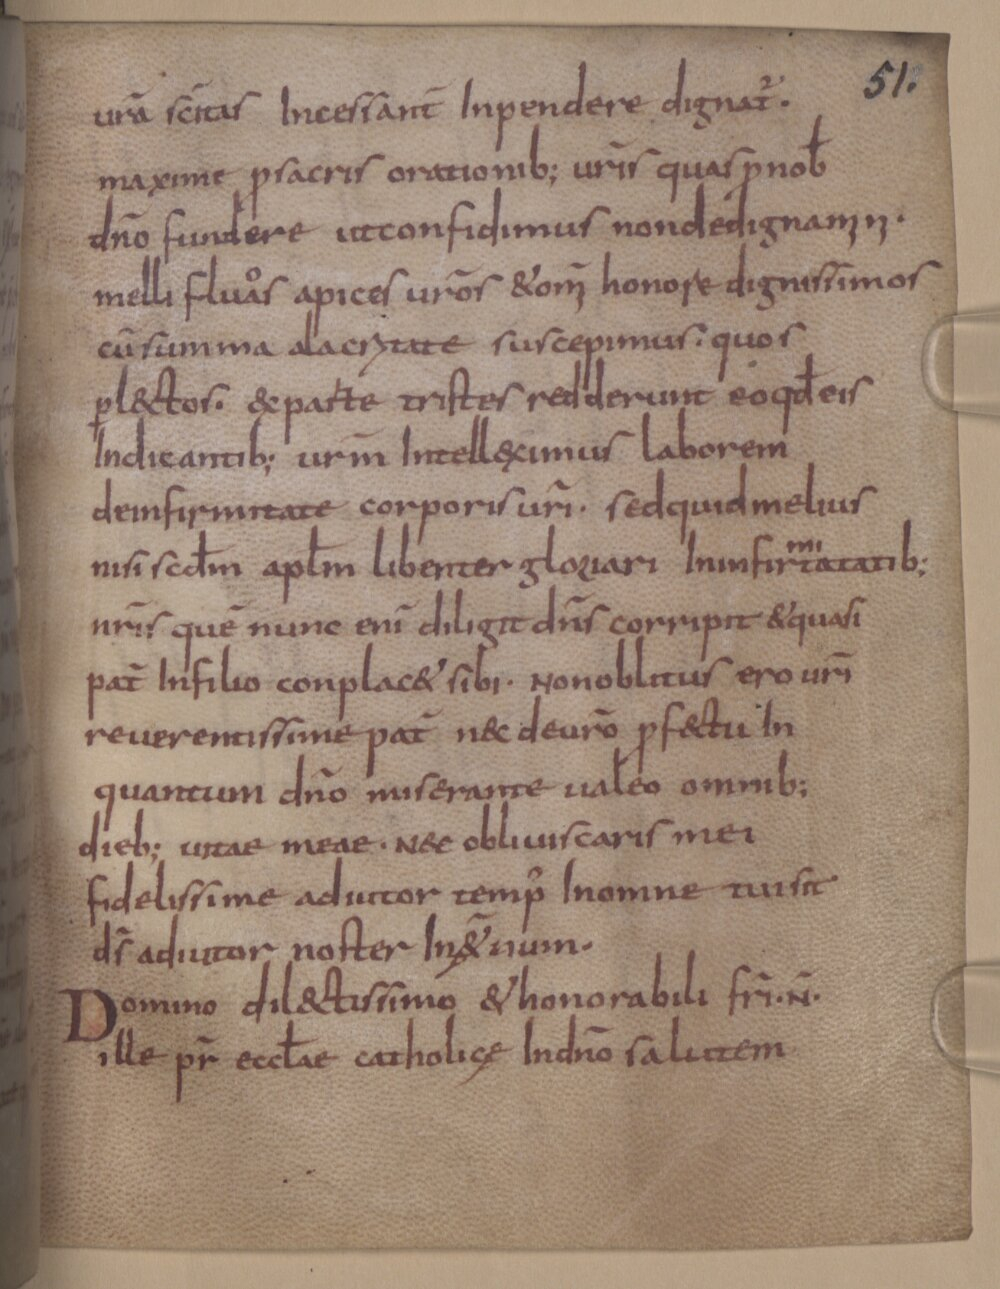 51.
urā sc̄itas Incessant̄ Inpendere dignat᷑.
maxime ꝓsacris orationib; ur̄is quas ꝓnob̄
dn̄o fundere utconfidimus nondedignamꝫn.
melli fluꝰos apices ur̄os &om̄ꝫ honore dignissimos
cū summa alacritate suscepimus. quos
ꝑl&ctos. &parte tristes redderunt eo qđ eis
Indicantib; ur̄m Intell&ximus laborem
deinfirmitate corporis ur̄i. sedquid melius
nisi scd̄m apl̄m libenter gloriari Ininfirmitatib;
nr̄is quē nunc enī diligit dn̄s corripit &quasi
pat̄ Infilio conplac& sibi. Nonoblitus ero ur̄i
reuerentissime pat̄ n&c deur̄o ꝓf&ctu In
quantum dn̄o miserante ualeo omnib;
dieb; uitae meae. Nec obliuiscaris mei
fidelissime adiutor temp̄r Inomne tui sit
ds̄ adiutor noster In&̄rnum.
Domino dil&ctissimo &honorabili fr̄i. N̄.
ille pr̄ eccl̄ae catholicę Indn̄o salutem